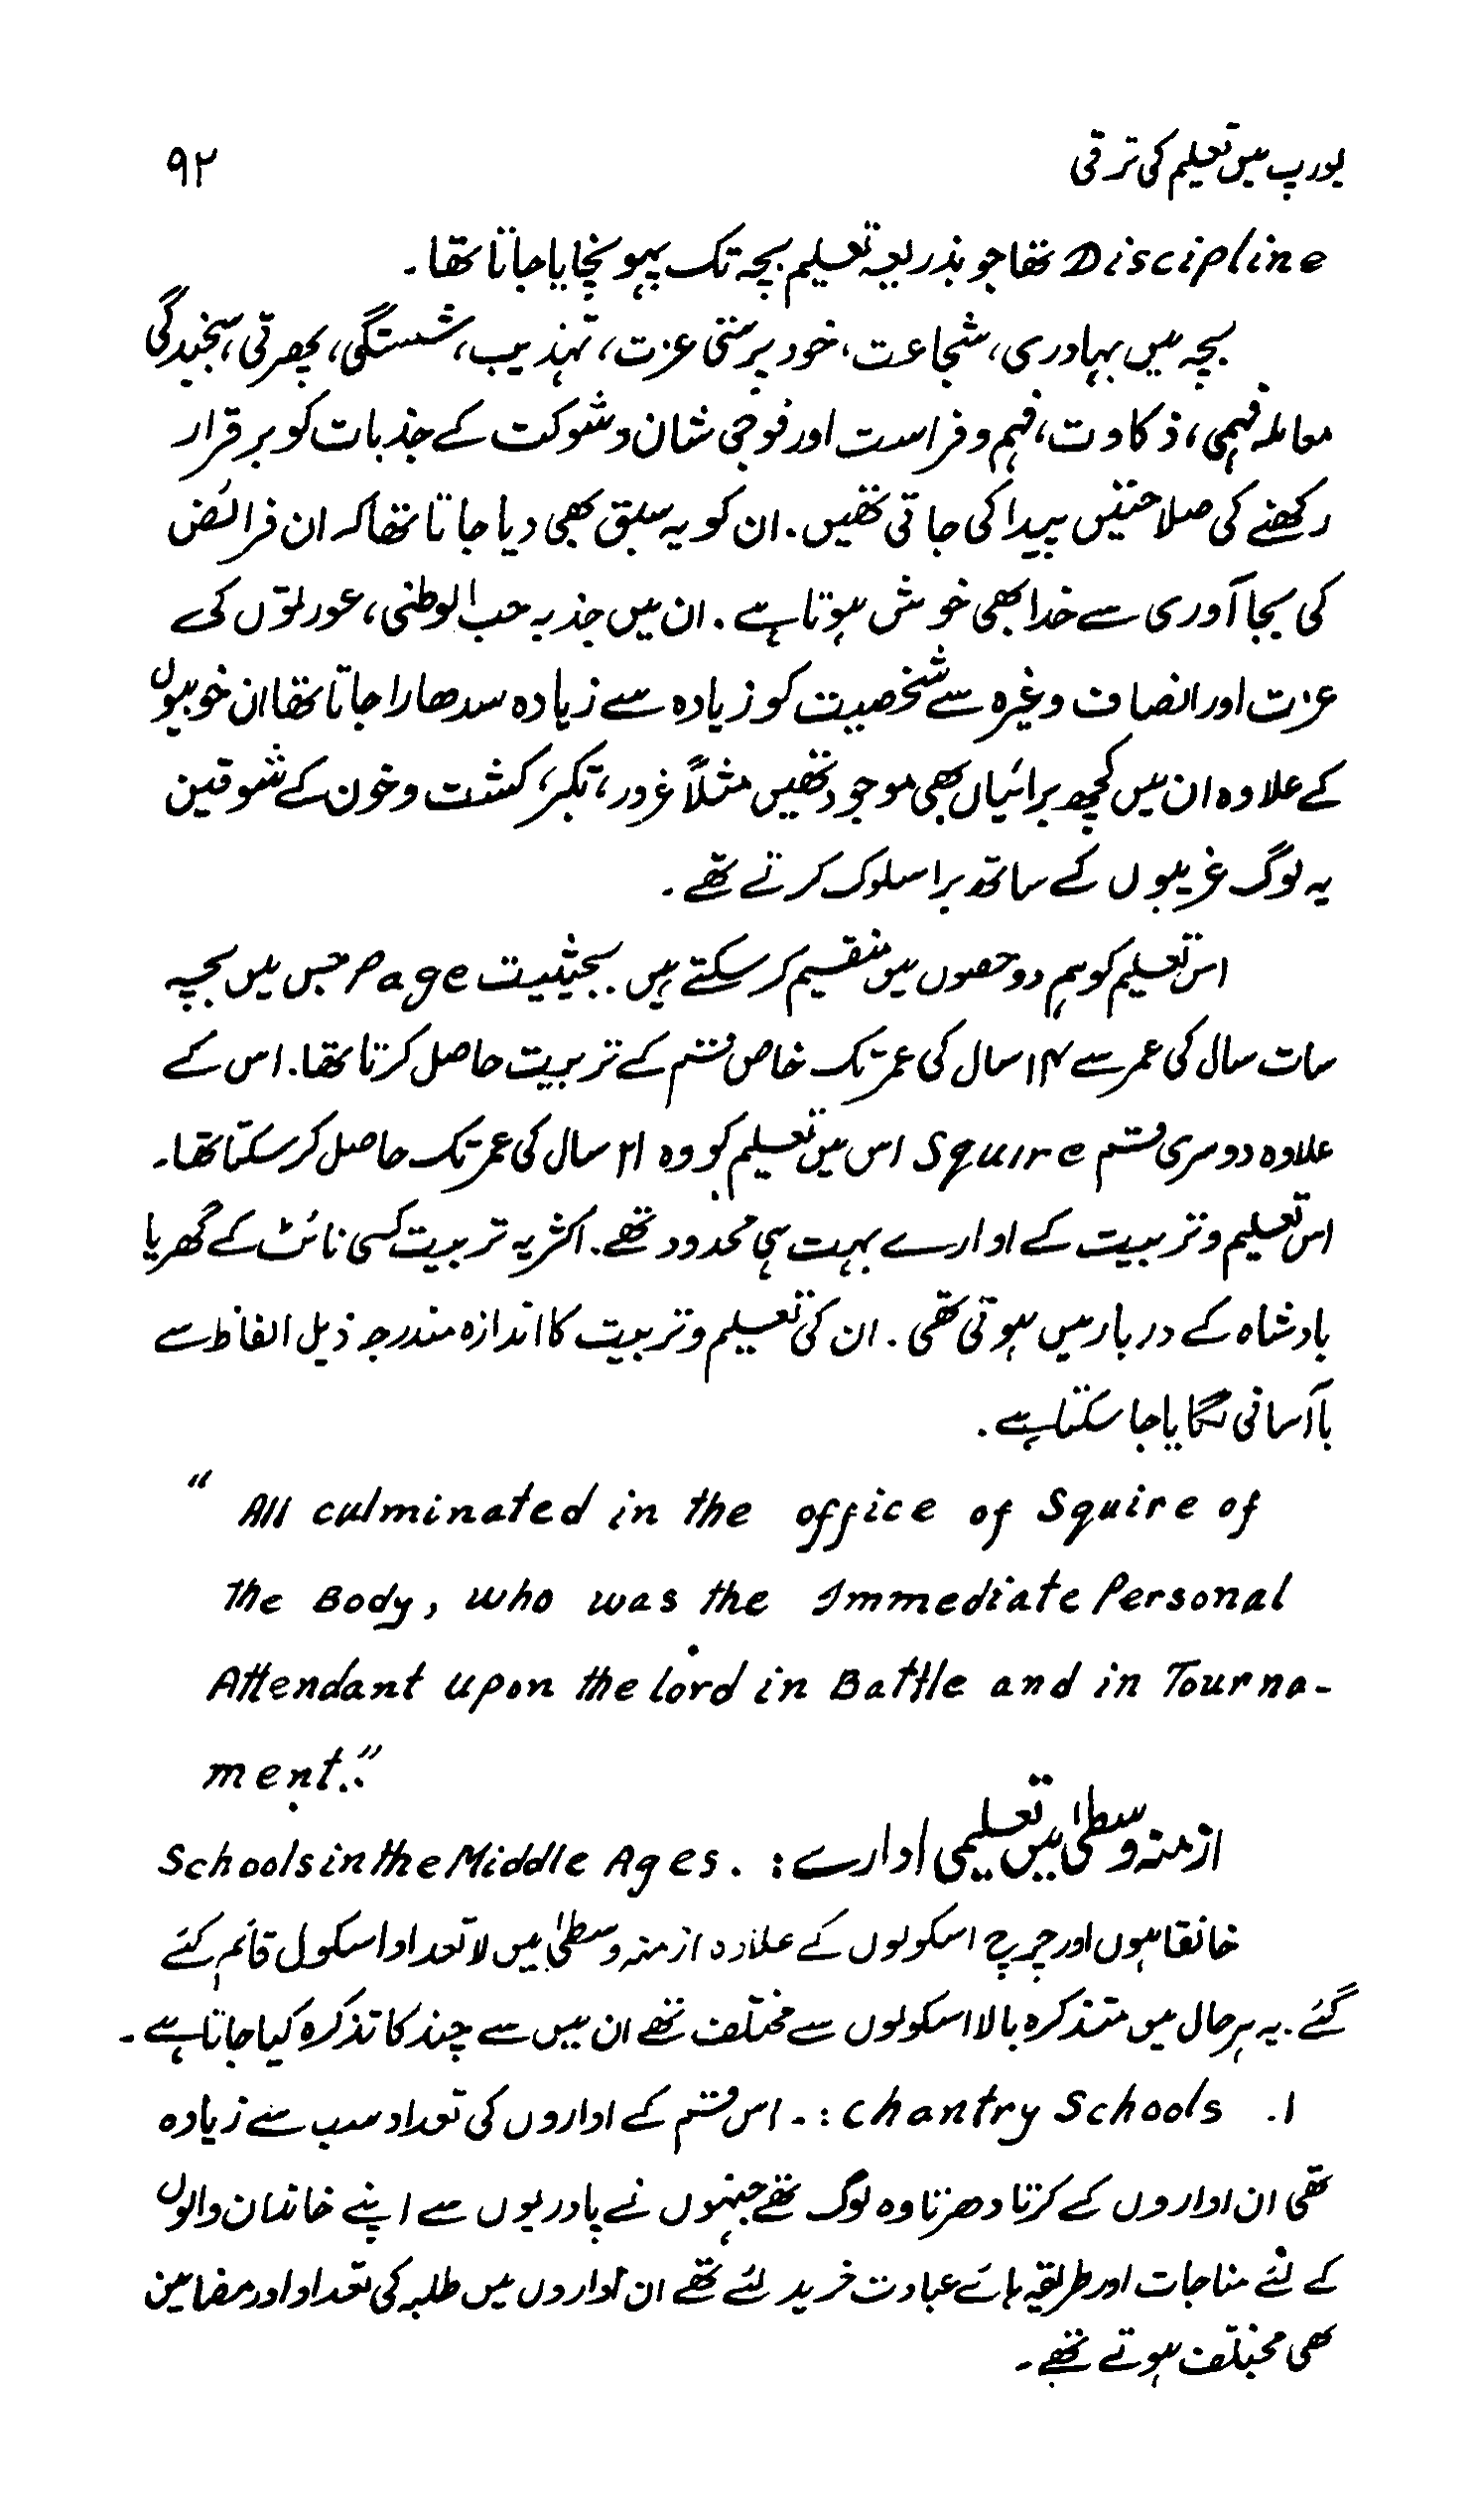 یورپ میں تعلیم کی ترقی ۹۲
Discipline تھا جو بذریعہ تعلیم بچہ تک پہونچایا جاتا تھا۔
بچہ میں بہادری، شجاعت، خود پرستی عزت، تہذیب، شستگی، پھرتی، سنجیدگی
معاملہ فہمی، ذکاوت، فہم و فراست اور فوجی شان و شوکت کے جذبات کو برقرار
رکھنے کی صلاحتیں پیدا کی جاتی تھیں۔ ان کو یہ سبق بھی دیا جاتا تھا کہ ان فرائض
کی بجا آوری سے خدا بھی خوش ہوتا ہے۔ ان میں جذبہ حب الوطنی، عورتوں کی
عزت اور انصاف وغیرہ سے شخصیت کو زیادہ سے زیادہ سدھارا جاتا تھا ان خوبیوں
کے علاوہ ان میں کچھ برائیاں بھی موجود تھیں مثلاً غرور، تکبر، کشت و خون کے شوقین
یہ لوگ غریبوں کے ساتھ برا سلوک کرتے تھے۔
اس تعلیم کو ہم دو حصوں میں منقسم کر سکتے ہیں۔ بحیثیت Page جس میں بچہ
سات سال کی عمر سے ۱۴ سال کی عمر تک خاص قسم کے تربیت حاصل کرتا تھا۔ اس کے
علاوہ دوسری قسم Squire اس میں تعلیم کو وہ ۲۱ سال کی عمر تک حاصل کر سکتا تھا۔
اس تعلیم و تربیت کے ادارے بہت ہی محدود تھے۔ اکثر یہ تربیت کسی نائٹ کے گھر یا
بادشاہ کے دربار میں ہوتی تھی۔ ان کی تعلیم و تربیت کا اندازہ مندرجہ ذیل الفاظ سے
باآسانی لگایا جا سکتا ہے۔
" All culminated in the office of Squire of
the Body, who was the Immediate Personal
Attendant upon the lord in Battle and in Tourna-
ment."
ازمنہ وسطیٰ میں تعلیمی ادارے: Schools in the Middle Ages.
خانقاہوں اور چرچ اسکولوں کے علاوہ ازمنہ وسطیٰ میں لا تعداد اسکول قائم کئے
گئے۔ یہ ہر حال میں متذکرہ بالا اسکولوں سے مختلف تھے ان میں سے چند کا تذکرہ کیا جاتا ہے۔
۱۔ Chantry Schools :۔ اس قسم کے اداروں کی تعداد سب سے زیادہ
تھی ان اداروں کے کرتا دھرتا وہ لوگ تھے جنہوں نے پادریوں سے اپنے خاندان والوں
کے لئے مناجات اور طریقہ ہائے عبادت خرید لئے تھے ان اداروں میں طلبہ کی تعداد اور مضامین
بھی مختلف ہوتے تھے۔